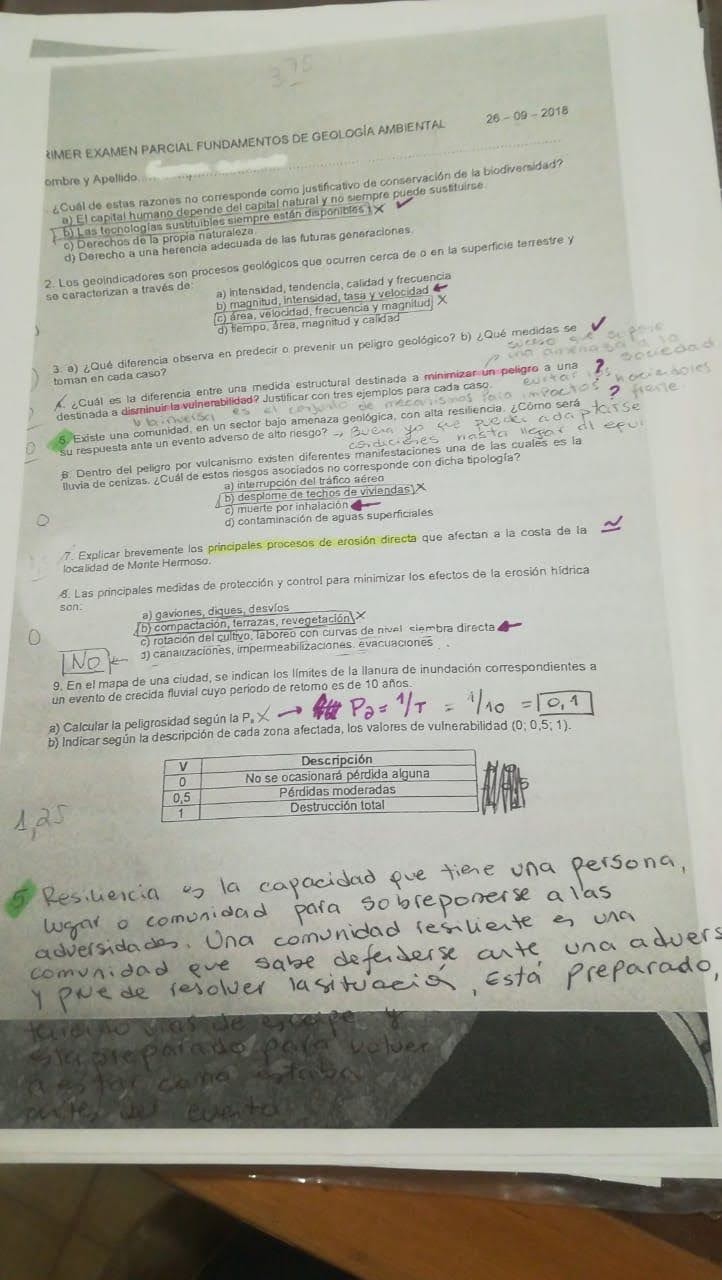 3,75
RIMER EXAMEN PARCIAL FUNDAMENTOS DE GEOLOGÍA AMBIENTAL 26 – 09 – 2018
ombre y Apellido
¿Cuál de estas razones no corresponde como justificativo de conservación de la biodiversidad?
a) El capital humano depende del capital natural y no siempre puede sustituirse.
b) Las tecnologías sustituibles siempre están disponibles X
c) Derechos de la propia naturaleza
d) Derecho a una herencia adecuada de las futuras generaciones.
2. Los geoindicadores son procesos geológicos que ocurren cerca de o en la superficie terrestre y
se caracterizan a través de:
a) intensidad, tendencia, calidad y frecuencia
b) magnitud, intensidad, tasa y velocidad
c) área, velocidad, frecuencia y magnitud X
d) tiempo, área, magnitud y calidad
3. a) ¿Qué diferencia observa en predecir o prevenir un peligro geológico? b) ¿Qué medidas se
toman en cada caso?
suceso que supone
una amenaza a la
sociedad
4. ¿Cuál es la diferencia entre una medida estructural destinada a minimizar un peligro a una ?
destinada a disminuir la vulnerabilidad? Justificar con tres ejemplos para cada caso. ?
es el conjunto de mecanismos para impactos
5. Existe una comunidad, en un sector bajo amenaza geológica, con alta resiliencia. ¿Cómo será
su respuesta ante un evento adverso de alto riesgo? → Buena ya que puede adaptarse
condiciones hasta llegar al equi
6. Dentro del peligro por vulcanismo existen diferentes manifestaciones una de las cuales es la
lluvia de cenizas. ¿Cuál de estos riesgos asociados no corresponden con dicha tipología?
a) interrupción del tráfico aéreo
b) desplome de techos de viviendas X
c) muerte por inhalación
d) contaminación de aguas superficiales
7. Explicar brevemente los principales procesos de erosión directa que afectan a la costa de la
localidad de Monte Hermoso.
8. Las principales medidas de protección y control para minimizar los efectos de la erosión hídrica
son:
a) gaviones, diques, desvíos
b) compactación, terrazas, revegetación X
c) rotación del cultivo, laboreo con curvas de nivel, siembra directa
d) canalizaciones, impermeabilizaciones, evacuaciones
NO ←
9. En el mapa de una ciudad, se indican los límites de la llanura de inundación correspondientes a
un evento de crecida fluvial cuyo período de retorno es de 10 años.
a) Calcular la peligrosidad según la Pa X → Pa = 1/T = 1/10 = 0,1
b) Indicar según la descripción de cada zona afectada, los valores de vulnerabilidad (0; 0,5; 1).
V Descripción
0 No se ocasionará pérdida alguna
0,5 Pérdidas moderadas
1 Destrucción total
1,25
5 Resiliencia es la capacidad que tiene una persona,
lugar o comunidad para sobreponerse a las
adversidades. Una comunidad resiliente es una
comunidad que sabe defenderse ante una advers
y puede resolver la situación, Está preparado,
teniendo vías de escape y
esta preparado para volver
a estar como estaba
antes del evento